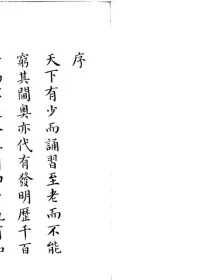 序
天下有少而誦習至老而不能
窮其閫奧亦代有發明歷千百